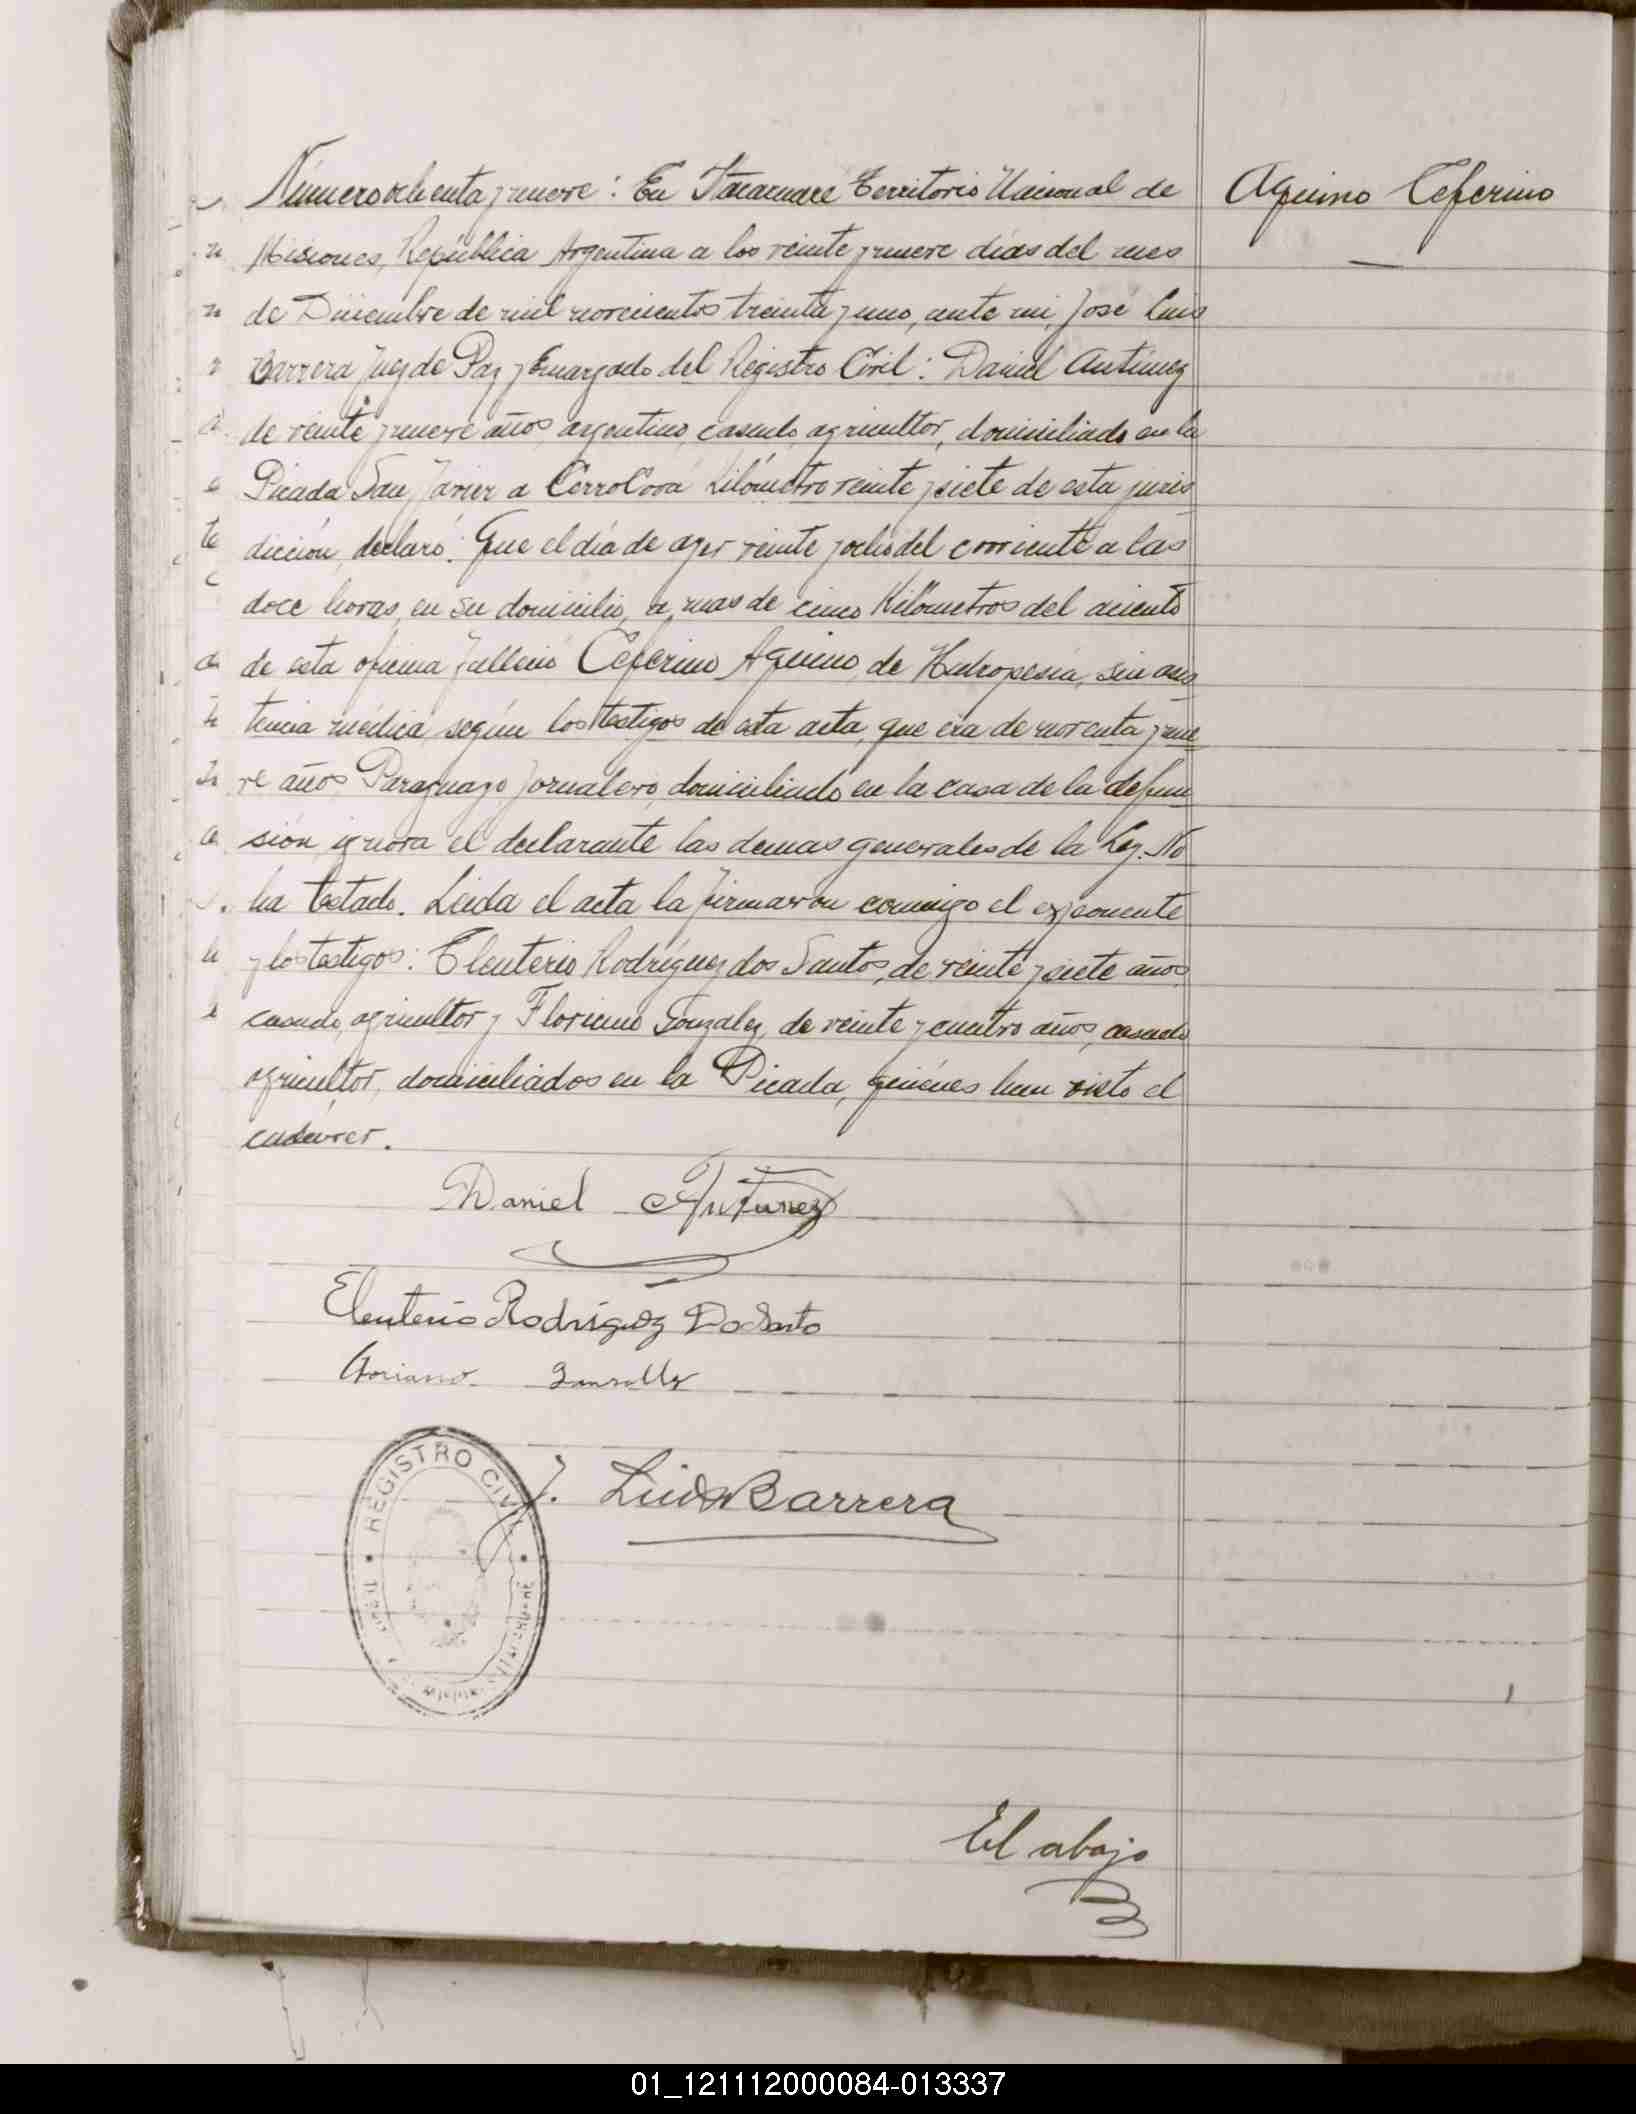 Número ochenta y nueve: En Itacaruaré Territorio Nacional de
Aquino Ceferino
Misiones, República Argentina a los veinte y nueve días del mes
de Diciembre de mil novecientos treinta y uno, ante mi, José Luis
Barrera Juez de Paz y Encargado del Registro Civil: Daniel Antúnez
de veinte y nueve años, argentino, casado, agricultor, domiciliado en la
Picada San Javier a Cerro Corá Kilómetro veinte y siete de esta juris
dicción, declaró: Que el día de ayer veinte y ocho del corriente a las
doce horas, en su domicilio, a mas de cinco Kilómetros del asiento
de esta oficina falleció Ceferino Aquino, de Hidropesía, sin asis
tencia médica según los testigos de esta acta, que era de noventa y nue
ve años Paraguayo Jornalero, domiciliado en la casa de la defun
sión, ignora el declarante las demas generales de la Ley. No
ha testado. Leida el acta la firmaron conmigo el exponente
y los testigos: Eleuterio Rodríguez dos Santos, de veinte y siete años
casado, agricultor y Floriano Gonzalez, de veinte y cuatro años, casado
agricultor, domiciliados en la Picada, quiénes han visto el
cadáver.
Daniel Antunez
Eleuterio Rodríguez Dos Santo
J. Luis Barrera
REGISTRO CIVIL
El abajo
01_121112000084-013337